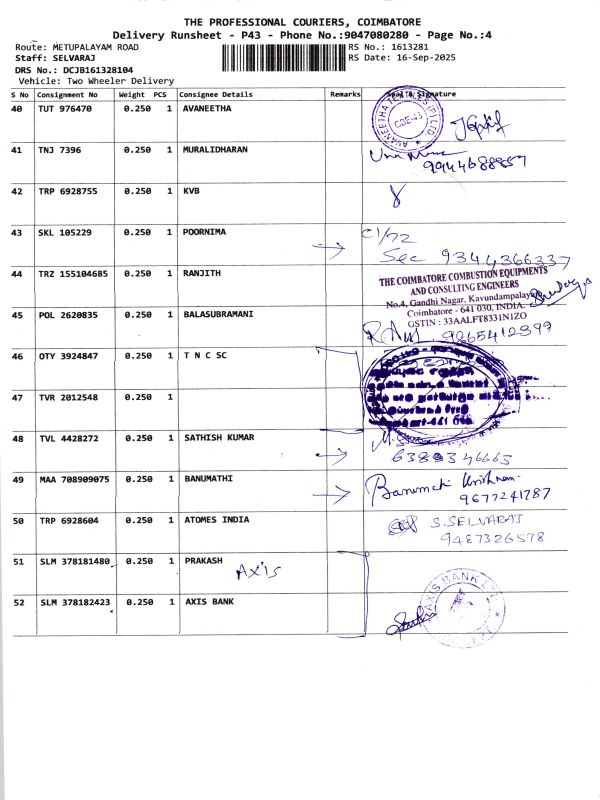 THE PROFESSIONAL COURIERS, COIMBATORE
Delivery Runsheet - P43 - Phone No.:9047080280 - Page No.:4
Route: METUPALAYAM ROAD RS No.: 1613281
Staff: SELVARAJ RS Date: 16-Sep-2025
DRS No.: DCJB161328104
Vehicle: Two Wheeler Delivery
S No Consignment No Weight PCS Consignee Details Remarks Seal & Signature
40 TUT 976470 0.250 1 AVANEETHA
CBE-43
41 TNJ 7396 0.250 1 MURALIDHARAN
9944688857
42 TRP 6928755 0.250 1 KVB
43 SKL 105229 0.250 1 POORNIMA
C1/72
Sec 9344366337
44 TRZ 155104685 0.250 1 RANJITH
THE COIMBATORE COMBUSTION EQUIPMENTS
AND CONSULTING ENGINEERS
No.4, Gandhi Nagar, Kavundampalayam
Coimbatore - 641 030, INDIA.
GSTIN : 33AALFT8331N1ZO
45 POL 2620835 0.250 1 BALASUBRAMANI
9865412399
46 OTY 3924847 0.250 1 T N C SC
47 TVR 2012548 0.250 1
48 TVL 4428272 0.250 1 SATHISH KUMAR
6380346665
49 MAA 708909075 0.250 1 BANUMATHI
Banumathi Krishnan
9677241787
50 TRP 6928604 0.250 1 ATOMES INDIA
S.SELVARAJ
9487326578
51 SLM 378181480 0.250 1 PRAKASH
Axis
52 SLM 378182423 0.250 1 AXIS BANK
AXIS BANK LTD